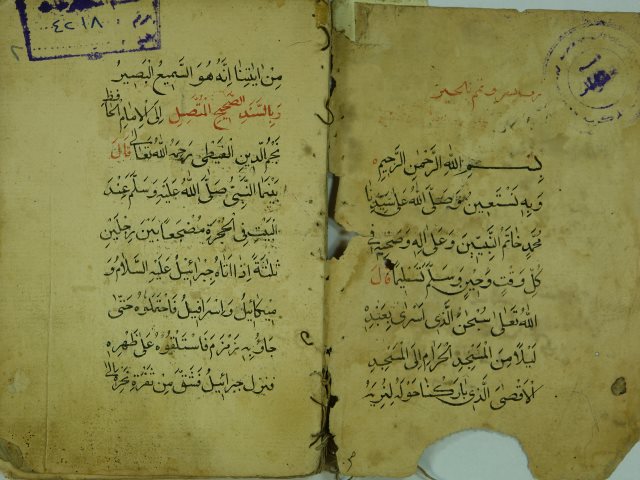 بسم الله الرحمن الرحيم
وبه نستعين وصلى الله على سيدنا
محمد خاتم النبيين وعلى اله وصحبه في
كل وقت وحين وسلم تسليما قال
الله تعالى سبحن الذى اسرى بعبده
ليلا من المسجد الحرام الى المسجد
الاقصى الذى باركنا حوله لنريه
٤٢١٨
من ايتنا انه هو السميع البصير
وبالسند الصحيح المتصل الى الامام الحافظ
نجم الدين الغيطى رحمه الله تعالى قال
بينما النبى صلى الله عليه وسلم عند
البيت فى الحجرة مضجعا بين رجلين
ثلثة اذ اتاه جبرائيل عليه السلام و
ميكائيل واسرافيل فاحتملوه حتى
جاؤا به زمزم فاستلقوه على ظهره
فنزل جبرائيل فشق من ثغرة نحره الى